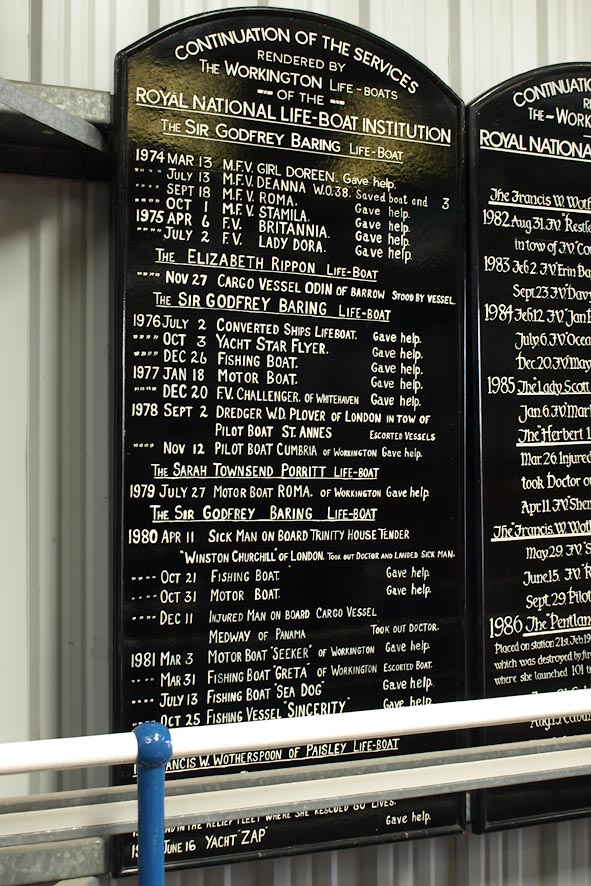 CONTINUATION OF THE SERVICES
RENDERED BY
THE WORKINGTON LIFE-BOATS
OF THE
ROYAL NATIONAL LIFE-BOAT INSTITUTION
THE SIR GODFREY BARING LIFE-BOAT
1974 MAR 13 M.F.V. GIRL DOREEN. Gave help.
"" "" JULY 13 M.F.V. DEANNA W.O.38. Saved boat and 3
"" "" SEPT 18 M.F.V. ROMA. Gave help.
"" "" OCT 1 M.F.V. STAMILA. Gave help.
1975 APR 6 F.V. BRITANNIA. Gave help.
"" "" JULY 2 F.V. LADY DORA. Gave help.
THE ELIZABETH RIPPON LIFE-BOAT
"" "" NOV 27 CARGO VESSEL ODIN OF BARROW STOOD BY VESSEL.
THE SIR GODFREY BARING LIFE-BOAT
1976 JULY 2 CONVERTED SHIPS LIFEBOAT. Gave help.
"" "" OCT 3 YACHT STAR FLYER. Gave help.
"" "" DEC 26 FISHING BOAT. Gave help.
1977 JAN 18 MOTOR BOAT. Gave help.
"" "" DEC 20 F.V. CHALLENGER. OF WHITEHAVEN Gave help.
1978 SEPT 2 DREDGER W.D. PLOVER OF LONDON IN TOW OF
PILOT BOAT ST. ANNES ESCORTED VESSELS
"" "" NOV 12 PILOT BOAT CUMBRIA OF WORKINGTON Gave help.
THE SARAH TOWNSEND PORRITT LIFE-BOAT
1979 JULY 27 MOTOR BOAT ROMA. OF WORKINGTON Gave help
THE SIR GODFREY BARING LIFE-BOAT
1980 APR 11 SICK MAN ON BOARD TRINITY HOUSE TENDER
"WINSTON CHURCHILL" OF LONDON. TOOK OUT DOCTOR AND LANDED SICK MAN.
"" "" OCT 21 FISHING BOAT. Gave help.
"" "" OCT 31 MOTOR BOAT. Gave help.
"" "" DEC 11 INJURED MAN ON BOARD CARGO VESSEL
MEDWAY OF PANAMA TOOK OUT DOCTOR.
1981 MAR 3 MOTOR BOAT "SEEKER" OF WORKINGTON Gave help.
"" "" MAR 31 FISHING BOAT "GRETA" OF WORKINGTON ESCORTED BOAT.
"" "" JULY 13 FISHING BOAT "SEA DOG" Gave help.
"" "" OCT 25 FISHING VESSEL "SINCERITY" Gave help
FRANCIS W. WOTHERSPOON OF PAISLEY LIFE-BOAT
IN THE RELIEF FLEET WHERE SHE RESCUED 60 LIVES.
Gave help.
JUNE 16 YACHT "ZAP"
CONTINUATION
THE WORK
ROYAL NATIONAL
The Francis W. Woth
1982 Aug.31. F.V. "Restle
in tow of F.V. "Co
1983 Feb.2. F.V. Erin Ba
Sept.23. F.V. Davy
1984 Feb.12. F.V. "Jan
July.6. F.V. "Ocea
Dec.20. F.V. "May
1985 The "Lady Scott
Jan.6. F.V. "Mari
The "Herbert
Mar.26. Injured
took Doctor o
Apr.11. F.V. "Sher
The "Francis. W. Woth
May.29. F.V. "S
June.15. F.V. "R
Sept.29. Pilot
1986 The "Pentlan
Placed on station 21st. Feb.19
which was destroyed by fire
where she launched 101 t